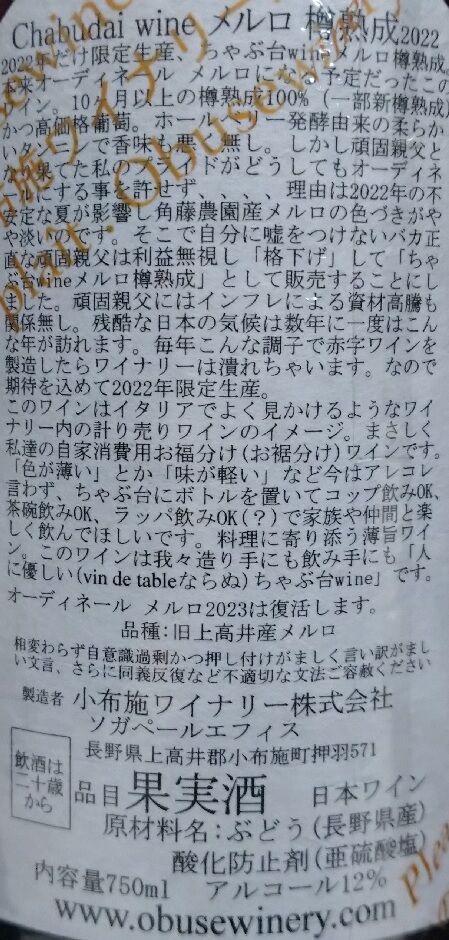 Chabudai wine メルロ 樽熟成2022
2022年だけ限定生産、ちゃぶ台wineメルロ樽熟成。
本来オーディネール メルロになる予定だったこの
ワイン。10ヶ月以上の樽熟成100% (一部新樽熟成)
かつ高価格葡萄。ホールベリー発酵由来の柔らか
いタンニンで香味も悪く無し。しかし頑固親父と
なり果てた私のプライドがどうしてもオーディネ
ールにする事を許せず、、、、理由は2022年の不
安定な夏が影響し角藤農園産メルロの色づきがや
や淡いのです。そこで自分に嘘をつけないバカ正
直な頑固親父は利益無視し「格下げ」して「ちゃ
ぶ台wineメルロ樽熟成」として販売することにし
ました。頑固親父にはインフレによる資材高騰も
関係無し。残酷な日本の気候は数年に一度はこん
な年が訪れます。毎年こんな調子で赤字ワインを
製造したらワイナリーは潰れちゃいます。なので
期待を込めて2022年限定生産。
このワインはイタリアでよく見かけるようなワイ
ナリー内の計り売りワインのイメージ。まさしく
私達の自家消費用お福分け(お裾分け)ワインです。
「色が薄い」とか「味が軽い」など今はアレコレ
言わず、ちゃぶ台にボトルを置いてコップ飲みOK、
茶碗飲みOK、ラッパ飲みOK(?)で家族や仲間と楽
しく飲んでほしいです。料理に寄り添う薄旨ワイ
ン。このワインは我々造り手にも飲み手にも「人
に優しい(vin de tableならぬ)ちゃぶ台wine」です。
オーディネール メルロ2023は復活します。
品種:旧上高井産メルロ
相変わらず自意識過剰かつ押し付けがましく言い訳がまし
い文言、さらに同義反復など不適切な文法ご容赦ください
製造者 小布施ワイナリー株式会社
ソガペールエフィス
長野県上高井郡小布施町押羽571
飲酒は
二十歳
から
品目 果実酒 日本ワイン
原材料名:ぶどう(長野県産)
酸化防止剤(亜硫酸塩)
内容量750ml アルコール12%
www.obusewinery.com